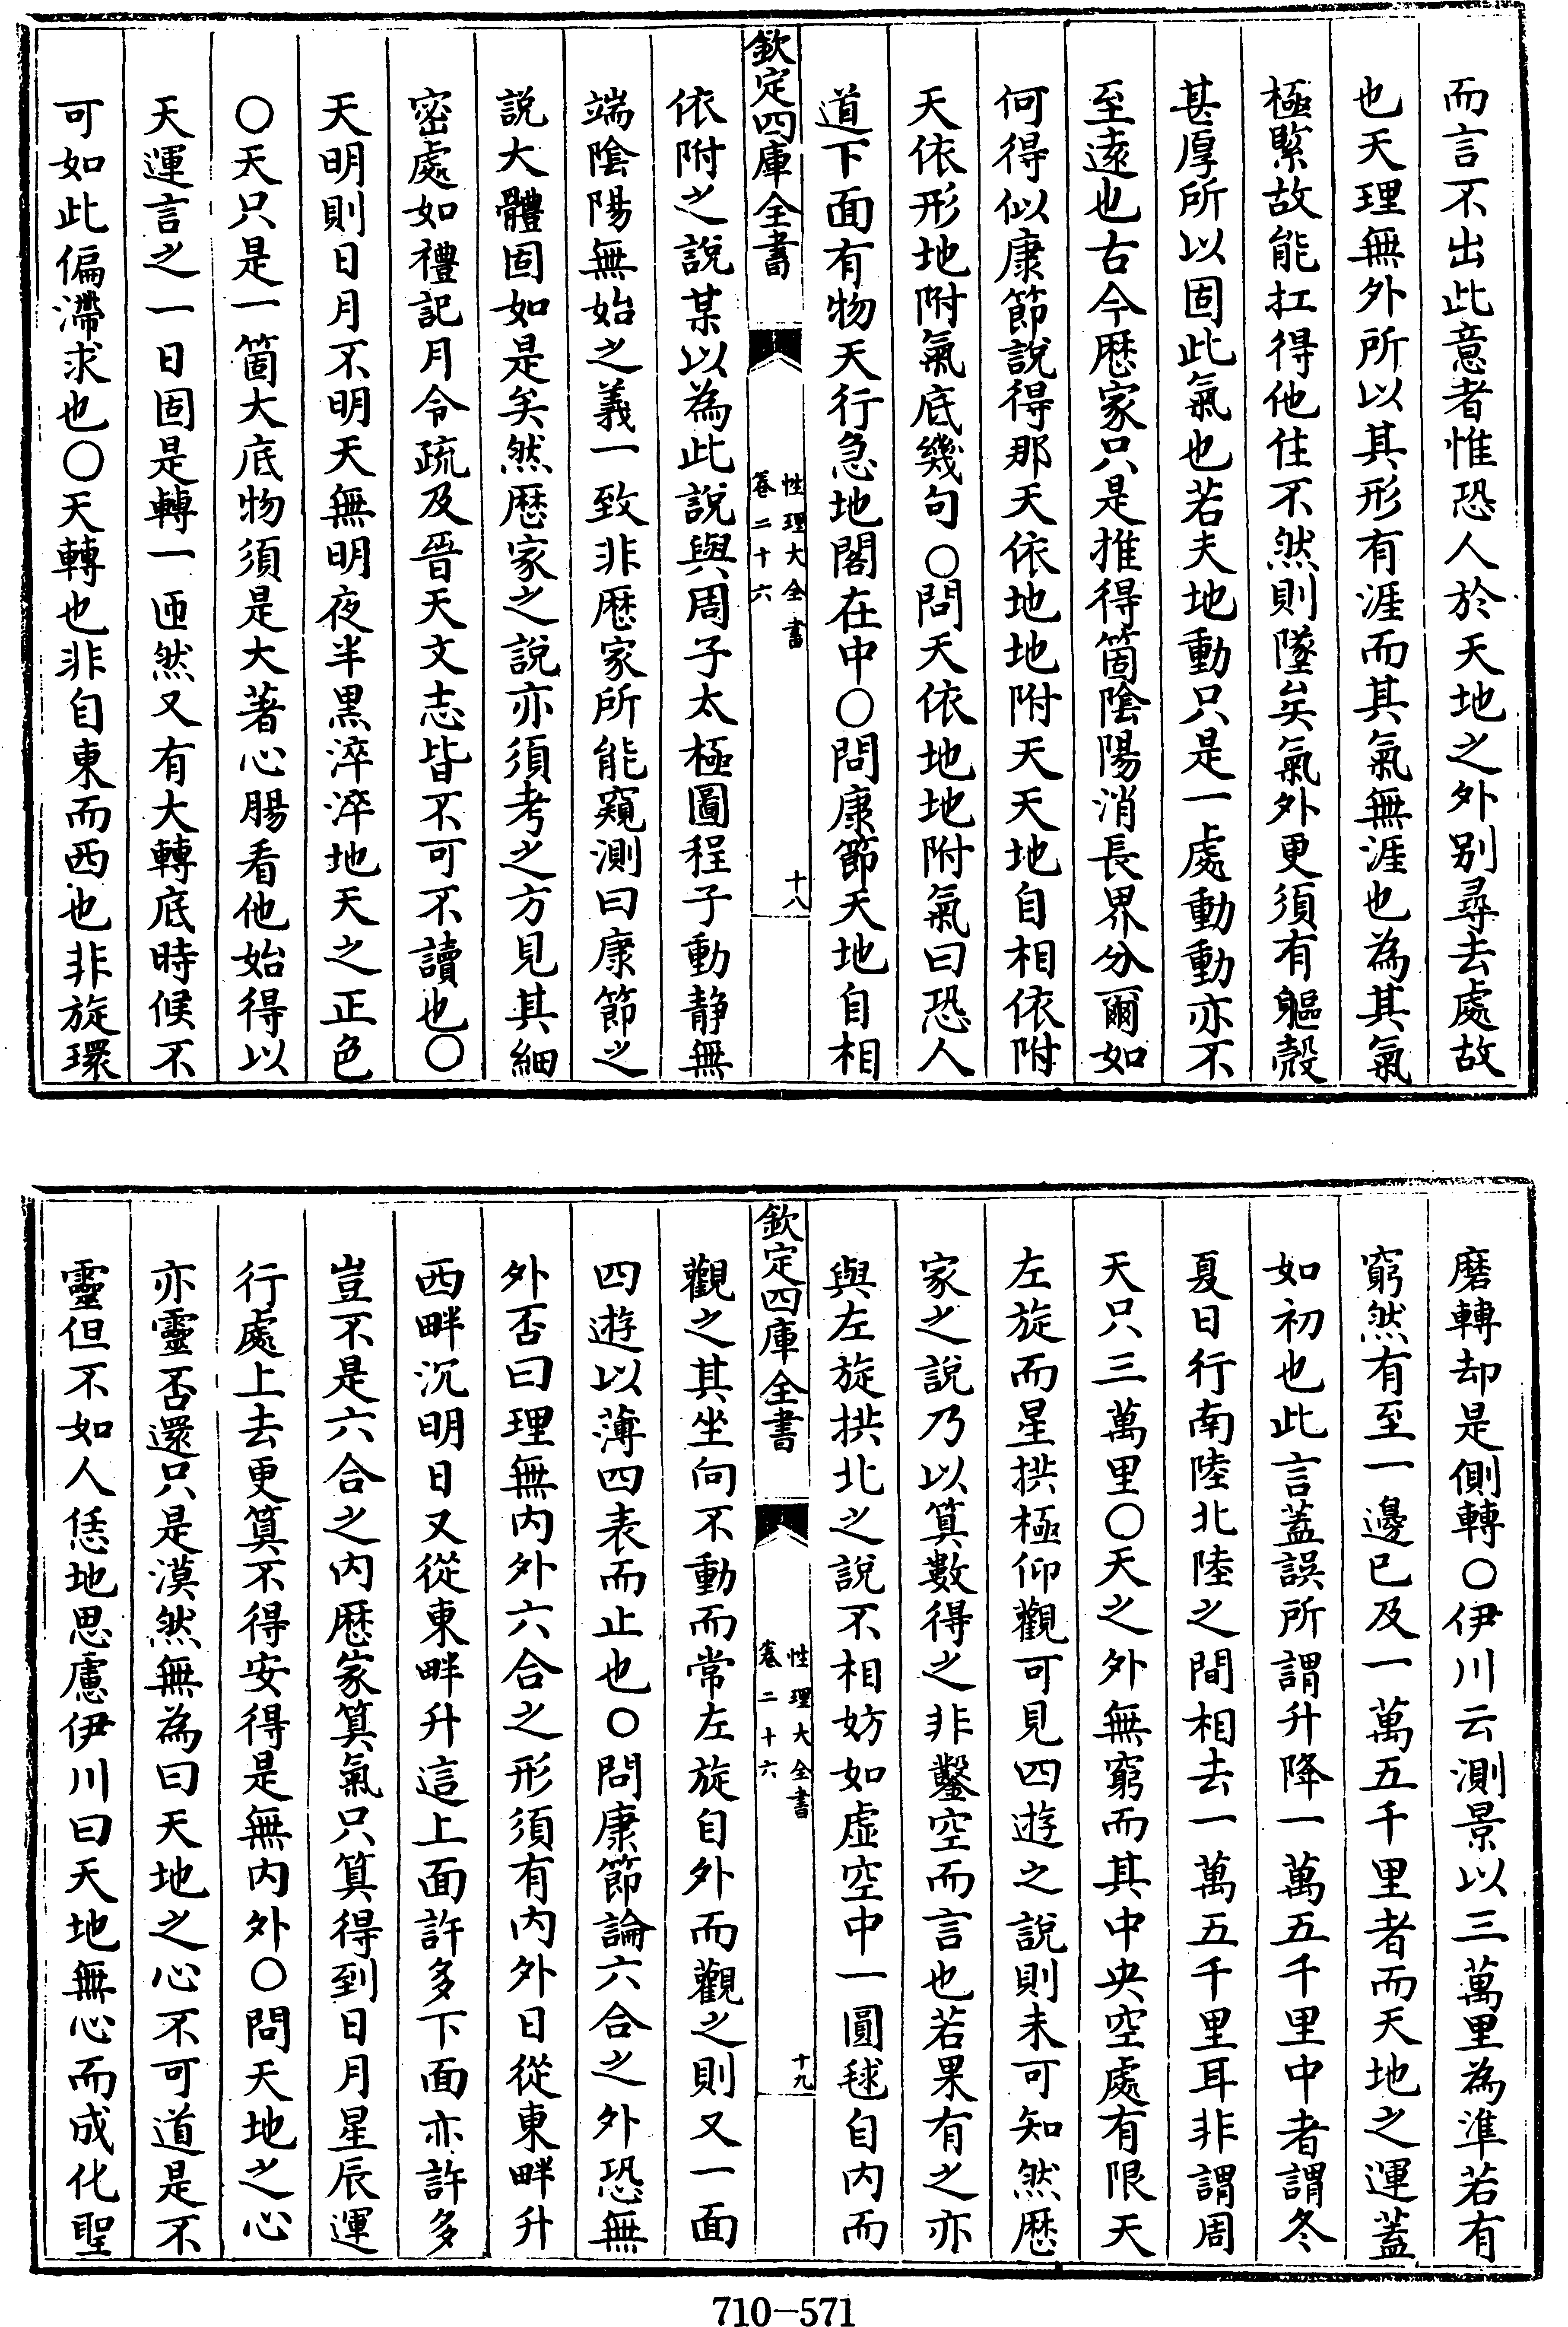 而言不出此意者惟恐人於天地之外别尋去處故
也天理無外所以其形有涯而其氣無涯也為其氣
極緊故能扛得他住不然則墜矣氣外更須有軀殼
甚厚所以固此氣也若夫地動只是一處動動亦不
至遠也古今厯家只是推得箇陰陽消長界分爾如
何得似康節說得那天依地地附天天地自相依附
天依形地附氣底幾句○問天依地地附氣曰恐人
道下面有物天行急地閣在中○問康節天地自相
欽定四庫全書
性理大全書
卷二十六
十八
依附之說某以為此說與周子太極圖程子動静無
端陰陽無始之義一致非厯家所能窺測曰康節之
說大體固如是矣然厯家之說亦須考之方見其細
密處如禮記月令疏及晉天文志皆不可不讀也○
天明則日月不明天無明夜半黒淬淬地天之正色
○天只是一箇大底物須是大著心腸看他始得以
天運言之一日固是轉一匝然又有大轉底時候不
可如此偏滯求也○天轉也非自東而西也非旋環
磨轉却是側轉○伊川云測景以三萬里為準若有
窮然有至一邊已及一萬五千里者而天地之運蓋
如初也此言蓋誤所謂升降一萬五千里中者謂冬
夏日行南陸北陸之間相去一萬五千里耳非謂周
天只三萬里○天之外無窮而其中央空處有限天
左旋而星拱極仰觀可見四遊之說則未可知然厯
家之說乃以算數得之非鑿空而言也若果有之亦
與左旋拱北之說不相妨如虛空中一圓毬自内而
欽定四庫全書
性理大全書
卷二十六
十九
觀之其坐向不動而常左旋自外而觀之則又一面
四遊以薄四表而止也○問康節論六合之外恐無
外否曰理無内外六合之形須有内外日從東畔升
西畔沉明日又從東畔升這上面許多下面亦許多
豈不是六合之内厯家算氣只算得到日月星辰運
行處上去更算不得安得是無内外○問天地之心
亦靈否還只是漠然無為曰天地之心不可道是不
靈但不如人恁地思慮伊川曰天地無心而成化聖
710-571